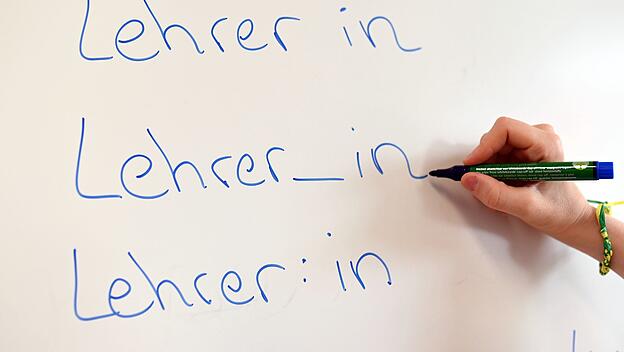 Lehrer in
Lehrer_in
Lehrer:in